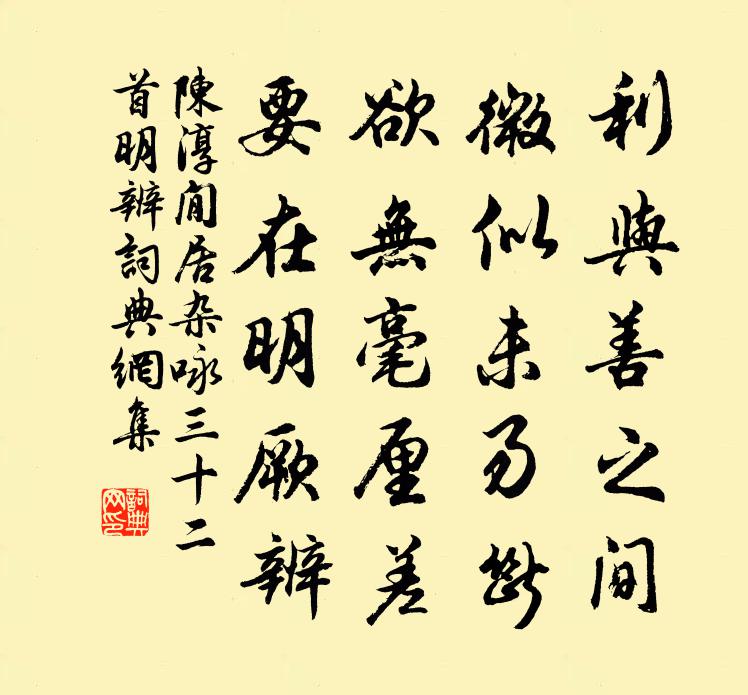 利與善之間
微似未易斷
欲無毫厘差
要在明厥辨
陳淳閒居杂咏三十二
首明辨詞典網集
詞典网印